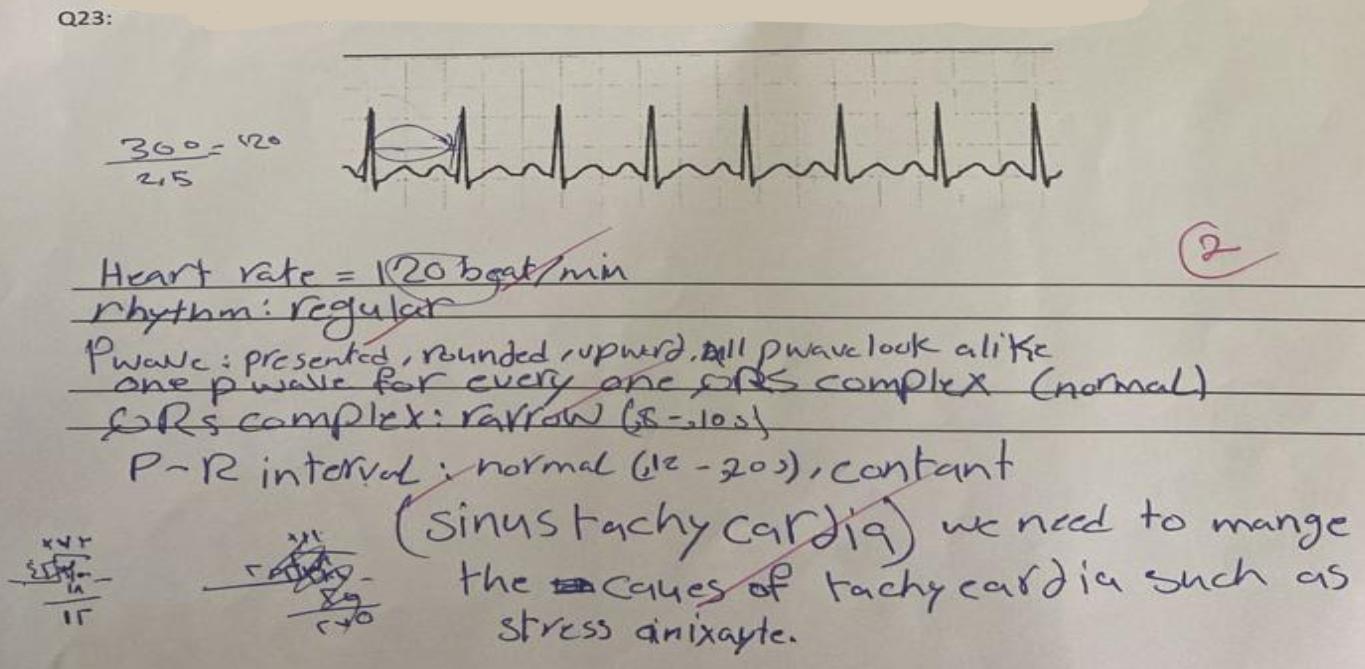 Q23:
300 = 120
2,5
2
Heart rate = 120 beat/min
rhythm: regular
Pwave: presented, rounded, upwerd, All pwave look alike
one p wave for every one QRS complex (normal)
QRS complex: rarrow (,8-,10s)
P-R interval: normal (,12 - 20s), contant
(sinus tachycardia) we need to mange
the caues of tachycardia such as
stress anixayte.